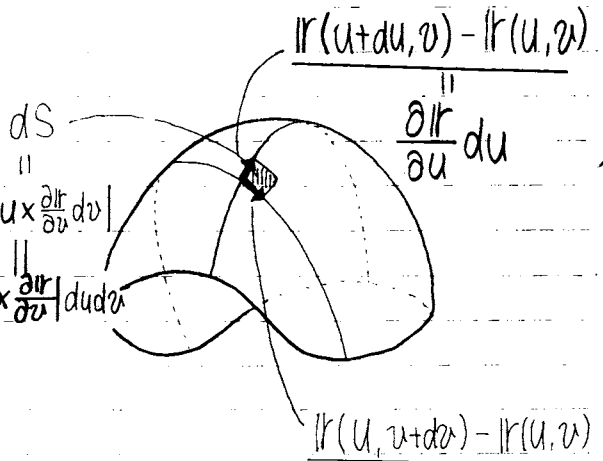 𝕣(u+du, v) − 𝕣(u, v)
=
∂𝕣/∂u du
dS
=
u × ∂𝕣/∂v dv|
=
× ∂𝕣/∂v| dudv
𝕣(u, v+dv) − 𝕣(u, v)